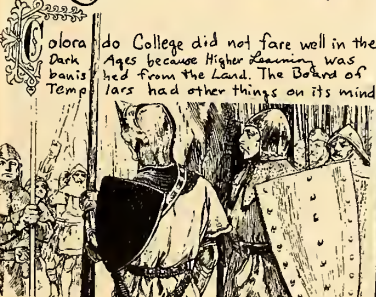 Colorado College did not fare well in the
Dark Ages because Higher Learning was
banished from the Land. The Board of
Templars had other things on its mind